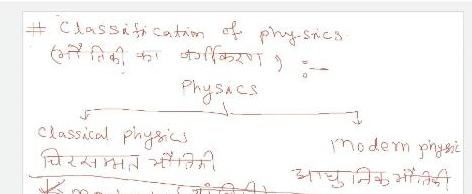 # Classification of physics
(भौतिकी का वर्गीकरण) :—
Physics
Classical physics
Modern physic
चिरसम्मत भौतिकी
आधुनिक भौतिकी